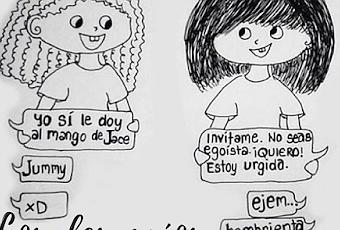 Yo sí le doy
al mango de Jace
Jummy
xD
Invitame. No seas
egoísta. ¡QUIERO!
Estoy urgida.
ejem..!
hambrienta